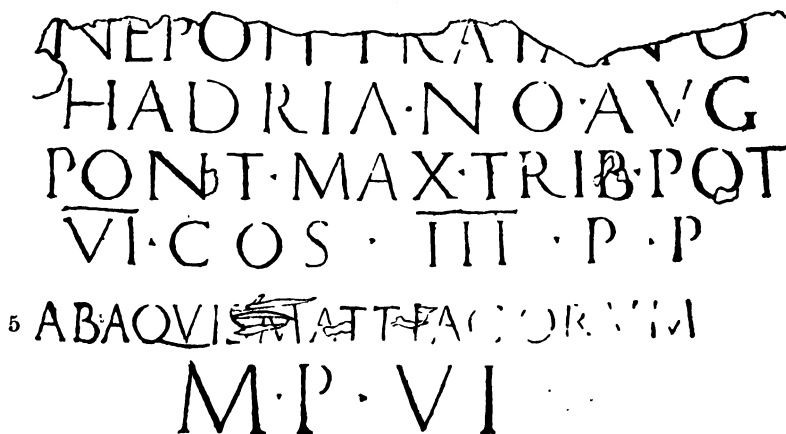 NEPOTI TRAIANO
HADRIA·NO·AVG
PONT·MAX·TRIB·POT
V̅I̅·COS · I̅I̅I̅ ·P·P
5 AB·AQVIS MATTIACORVM
M·P·VI